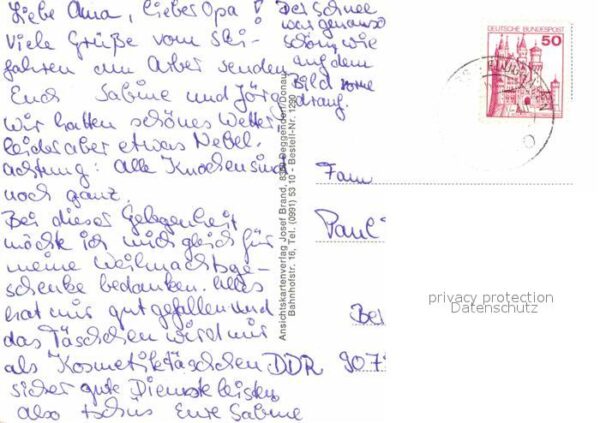 Liebe Oma, lieber Opa!
Viele Grüße vom Ski-
fahren am Arber senden
Euch Sabine und Jörg.
Wir hatten schönes Wetter
leider aber etwas Nebel.
achtung: Alle Knochen sind
noch ganz.
Bei dieser Gelegenheit
möchte ich mich gleich für
meine Weihnachtsge-
schenke bedanken. Alles
hat mir gut gefallen und
das Täschchen wird mir
als Kosmetiktäschchen
sicher gute Dienste leisten
also tschüs Eure Sabine
Der Schnee
war genauso
schön, wie
auf dem
Bild vorne
drauf.
Ansichtskartenverlag Josef Brand, Deggendorf/Donau
Bahnhofstr. 16, Tel. (0991) 53 10 · Bestell-Nr. 1290
DEUTSCHE BUNDESPOST
50
Fam
Paul
DDR 907
privacy protection
Datenschutz